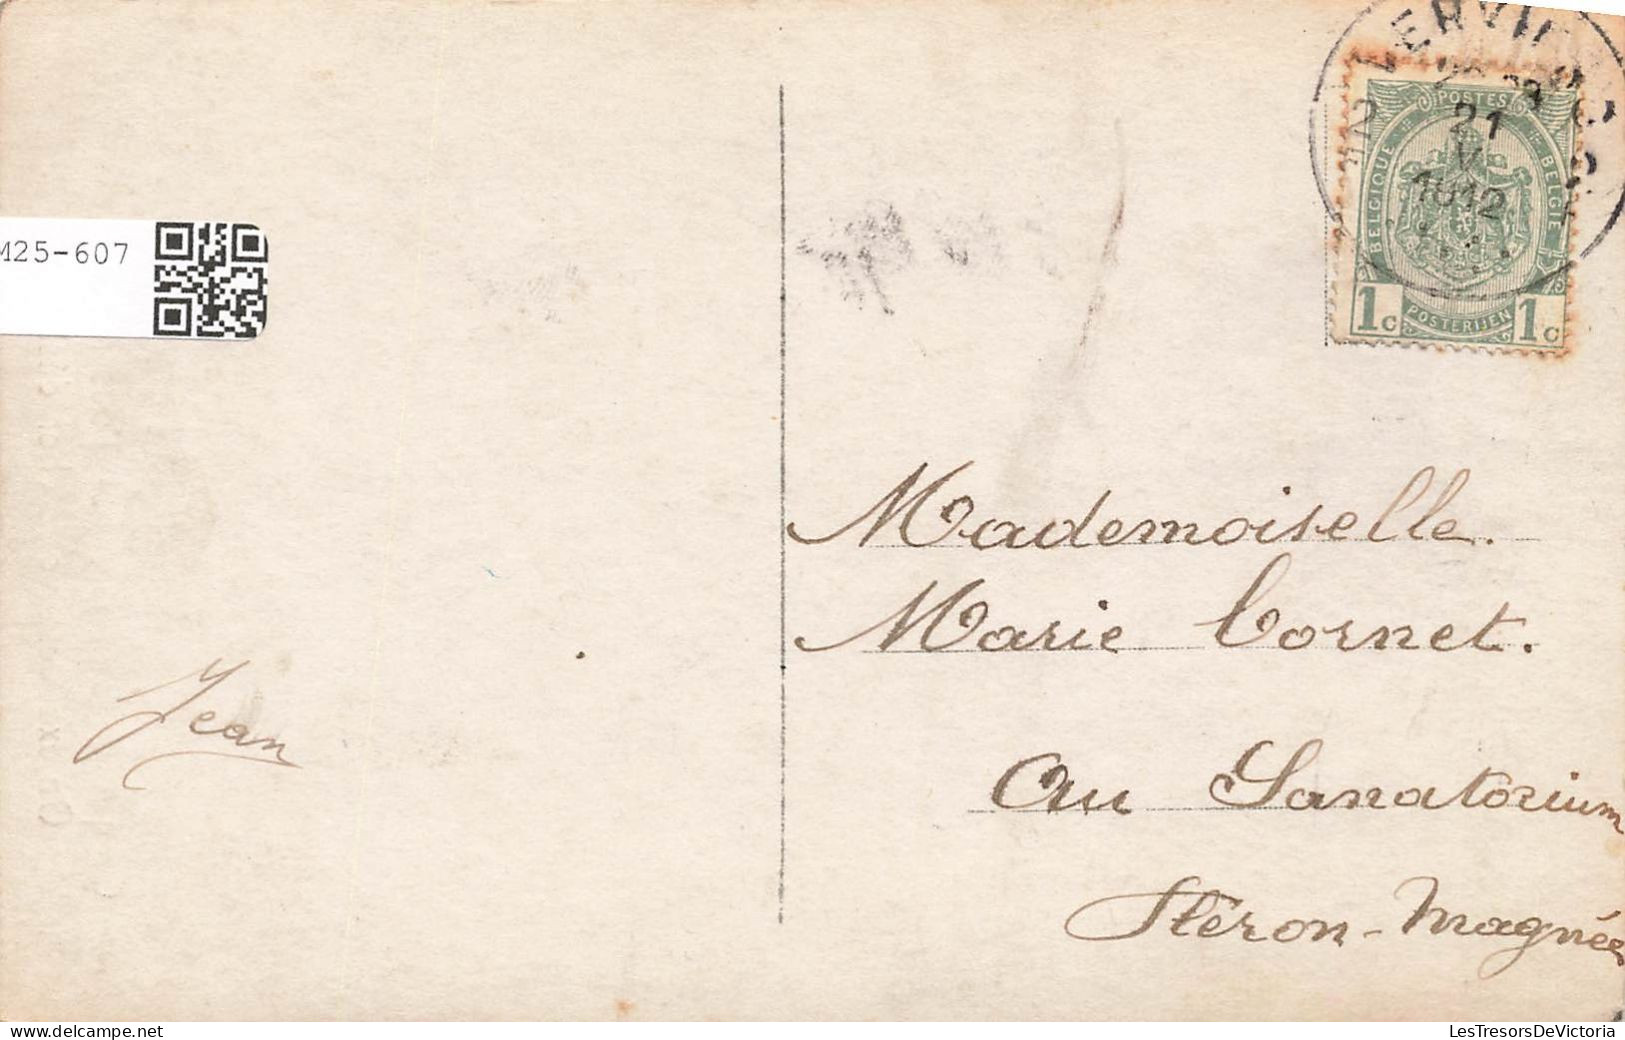 M25-607
POSTES
BELGIQUE
BELGIË
21
V
1912
1c POSTERIJEN 1c
Mademoiselle.
Marie Cornet.
Jean
Au Sanatorium
Fléron-Magnée
LesTresorsDeVictoria
www.delcampe.net